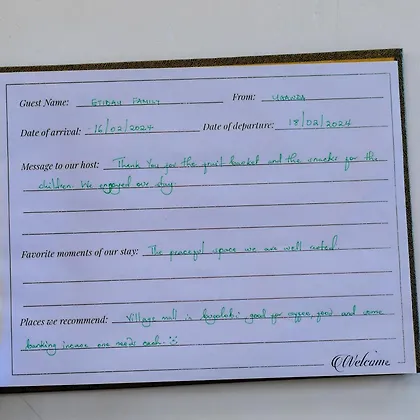 Guest Name: ETIDAU FAMILY From: UGANDA
Date of arrival: 16/02/2024 Date of departure: 18/02/2024
Message to our host: Thank You for the fruit basket and the snacks for the
children. We enjoyed our stay.
Favorite moments of our stay: The peaceful space we are well rested
Places we recommend: Village mall in Bugolobi good for coffee, food and some
banking incase one needs cash. :)
Welcome